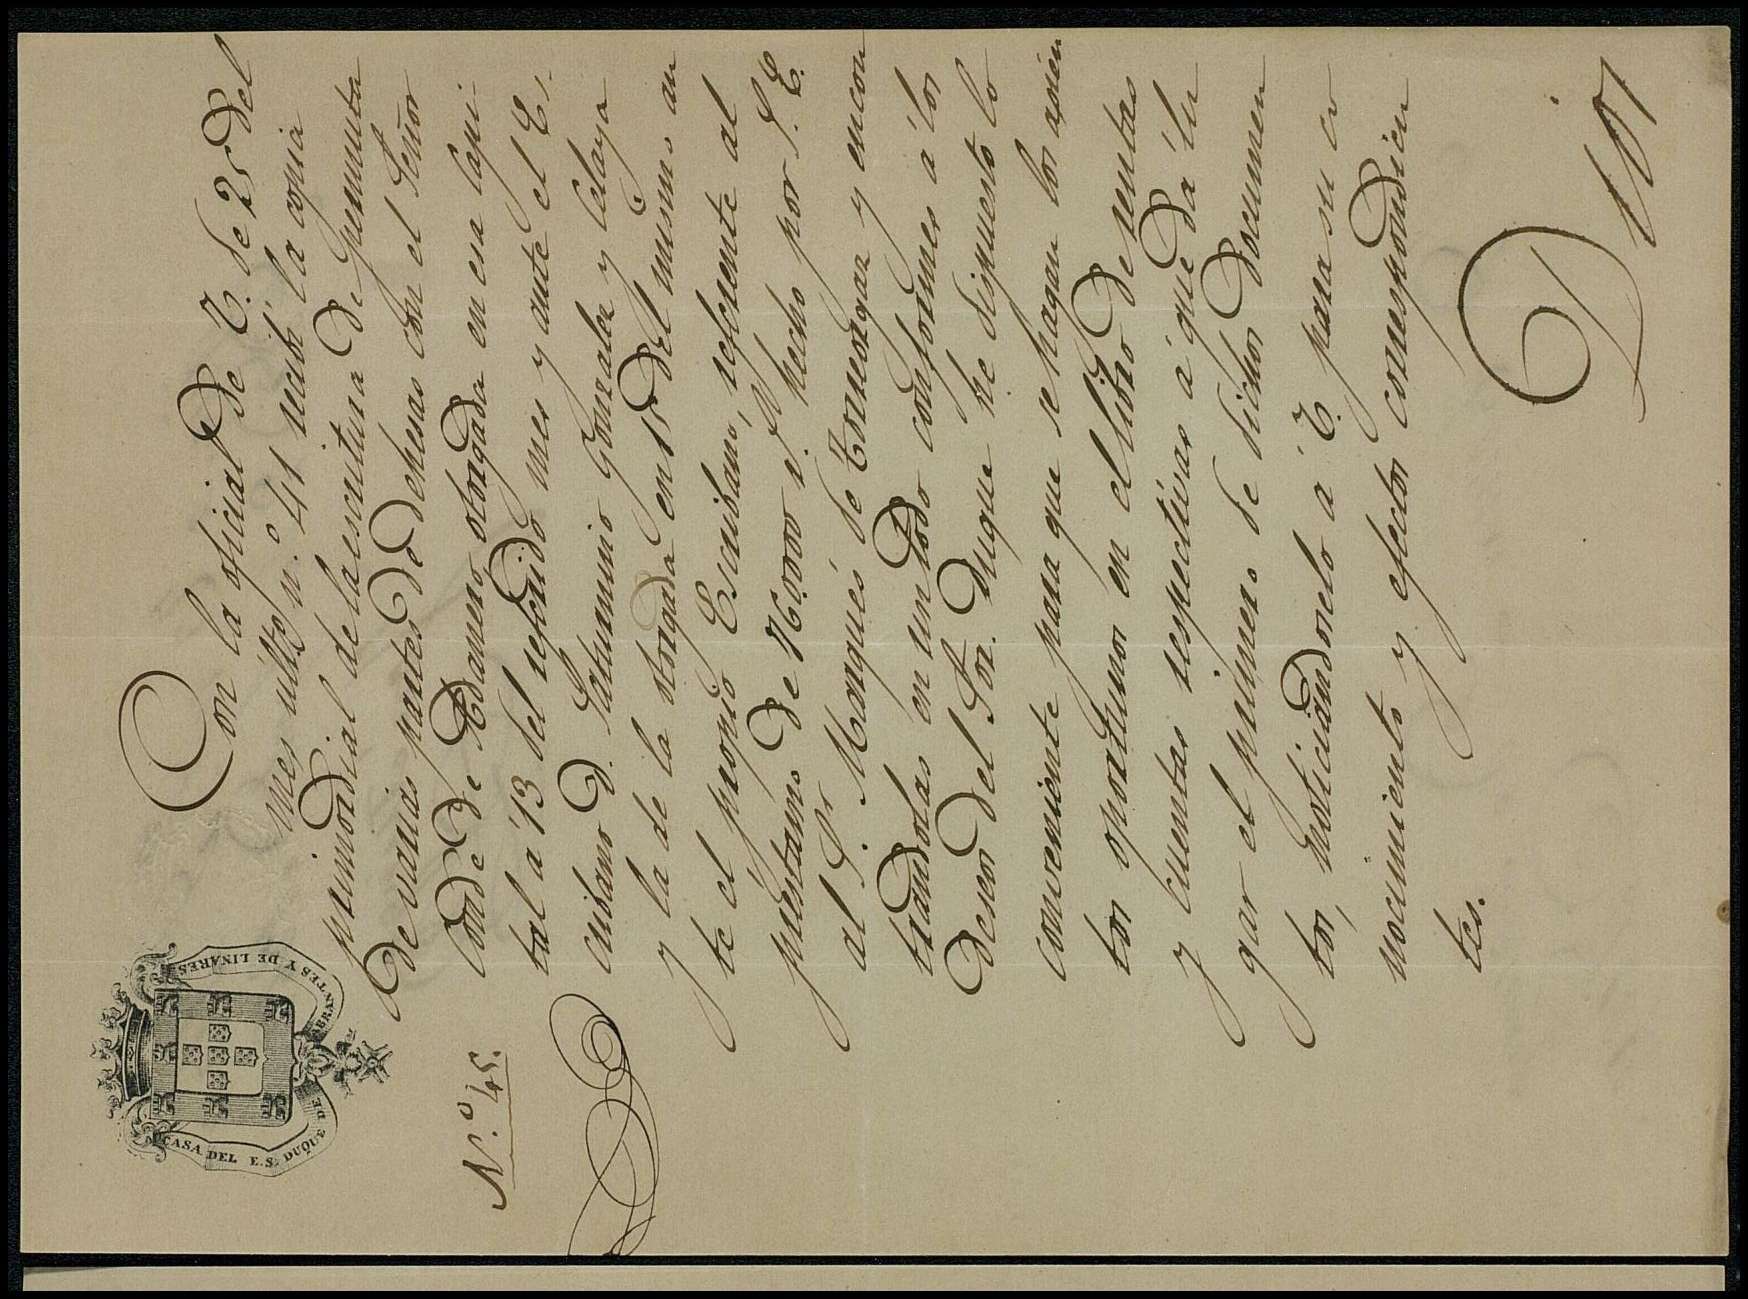 CASA DEL E.S. DUQUE DE ABRANTES Y DE LINARES
N.º 45.
Con la oficial de V. de 25 del
mes ultº n.º 41 recibí la copia
primordial de la escritura de permuta
de varias partes de dehesas con el Señor
Conde de Adanero otorgada en esa Capi-
tal á 13 del referido mes y ante el Es-
cribano D. Saturnino Gonzalez y Celaya
y la de la otorgada en 15 del mismo an
te el propio Escribano, referente al
prestamo de 76.000 r.s hecho por S. E.
al S.r Marqués de Torreorgaz y encon
trandolas en un todo conformes á los
deseos del Sor. Duque he dispuesto lo
conveniente para que se hagan los asien
tos oportunos en el libro de rentas
y cuentas respectivas á que dá lu
gar el primero de dichos documen
tos, noticiandoselo á V. para su co
nocimiento y efectos correspondien
tes.
D